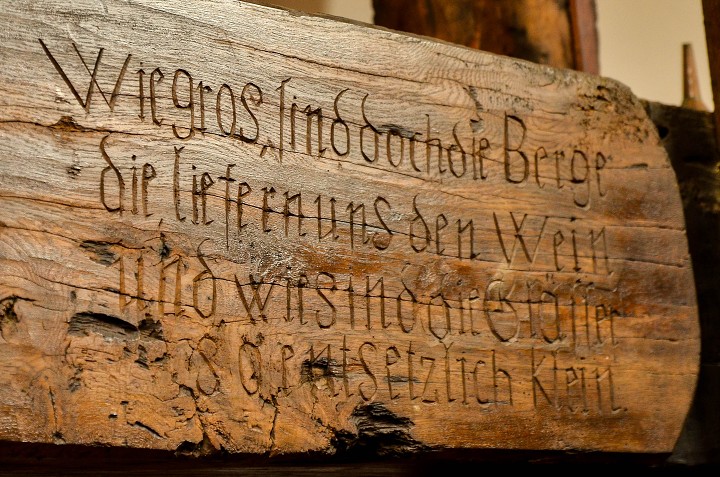 Wie gros, sind doch die Berge
die liefern uns den Wein
und wie sind die Gläser
so entsetzlich klein.